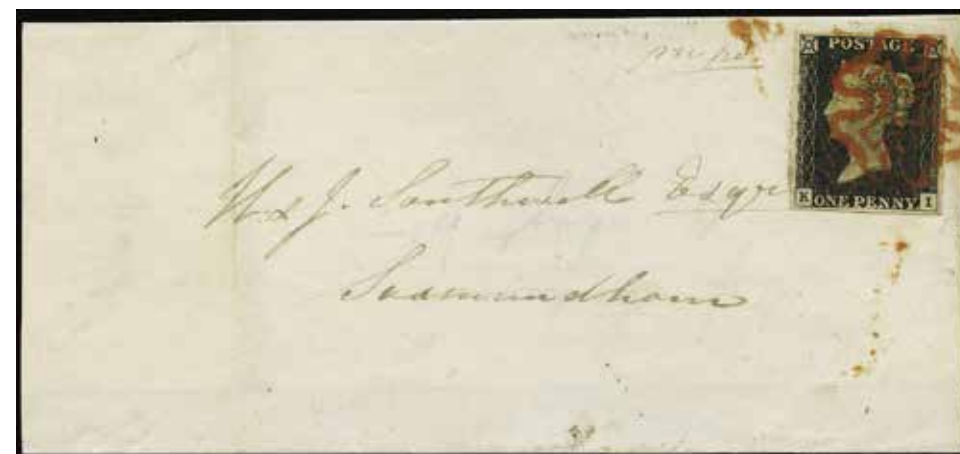 POSTAGE
K ONE PENNY I
W & J. Southwell Esqre
Saxmundham